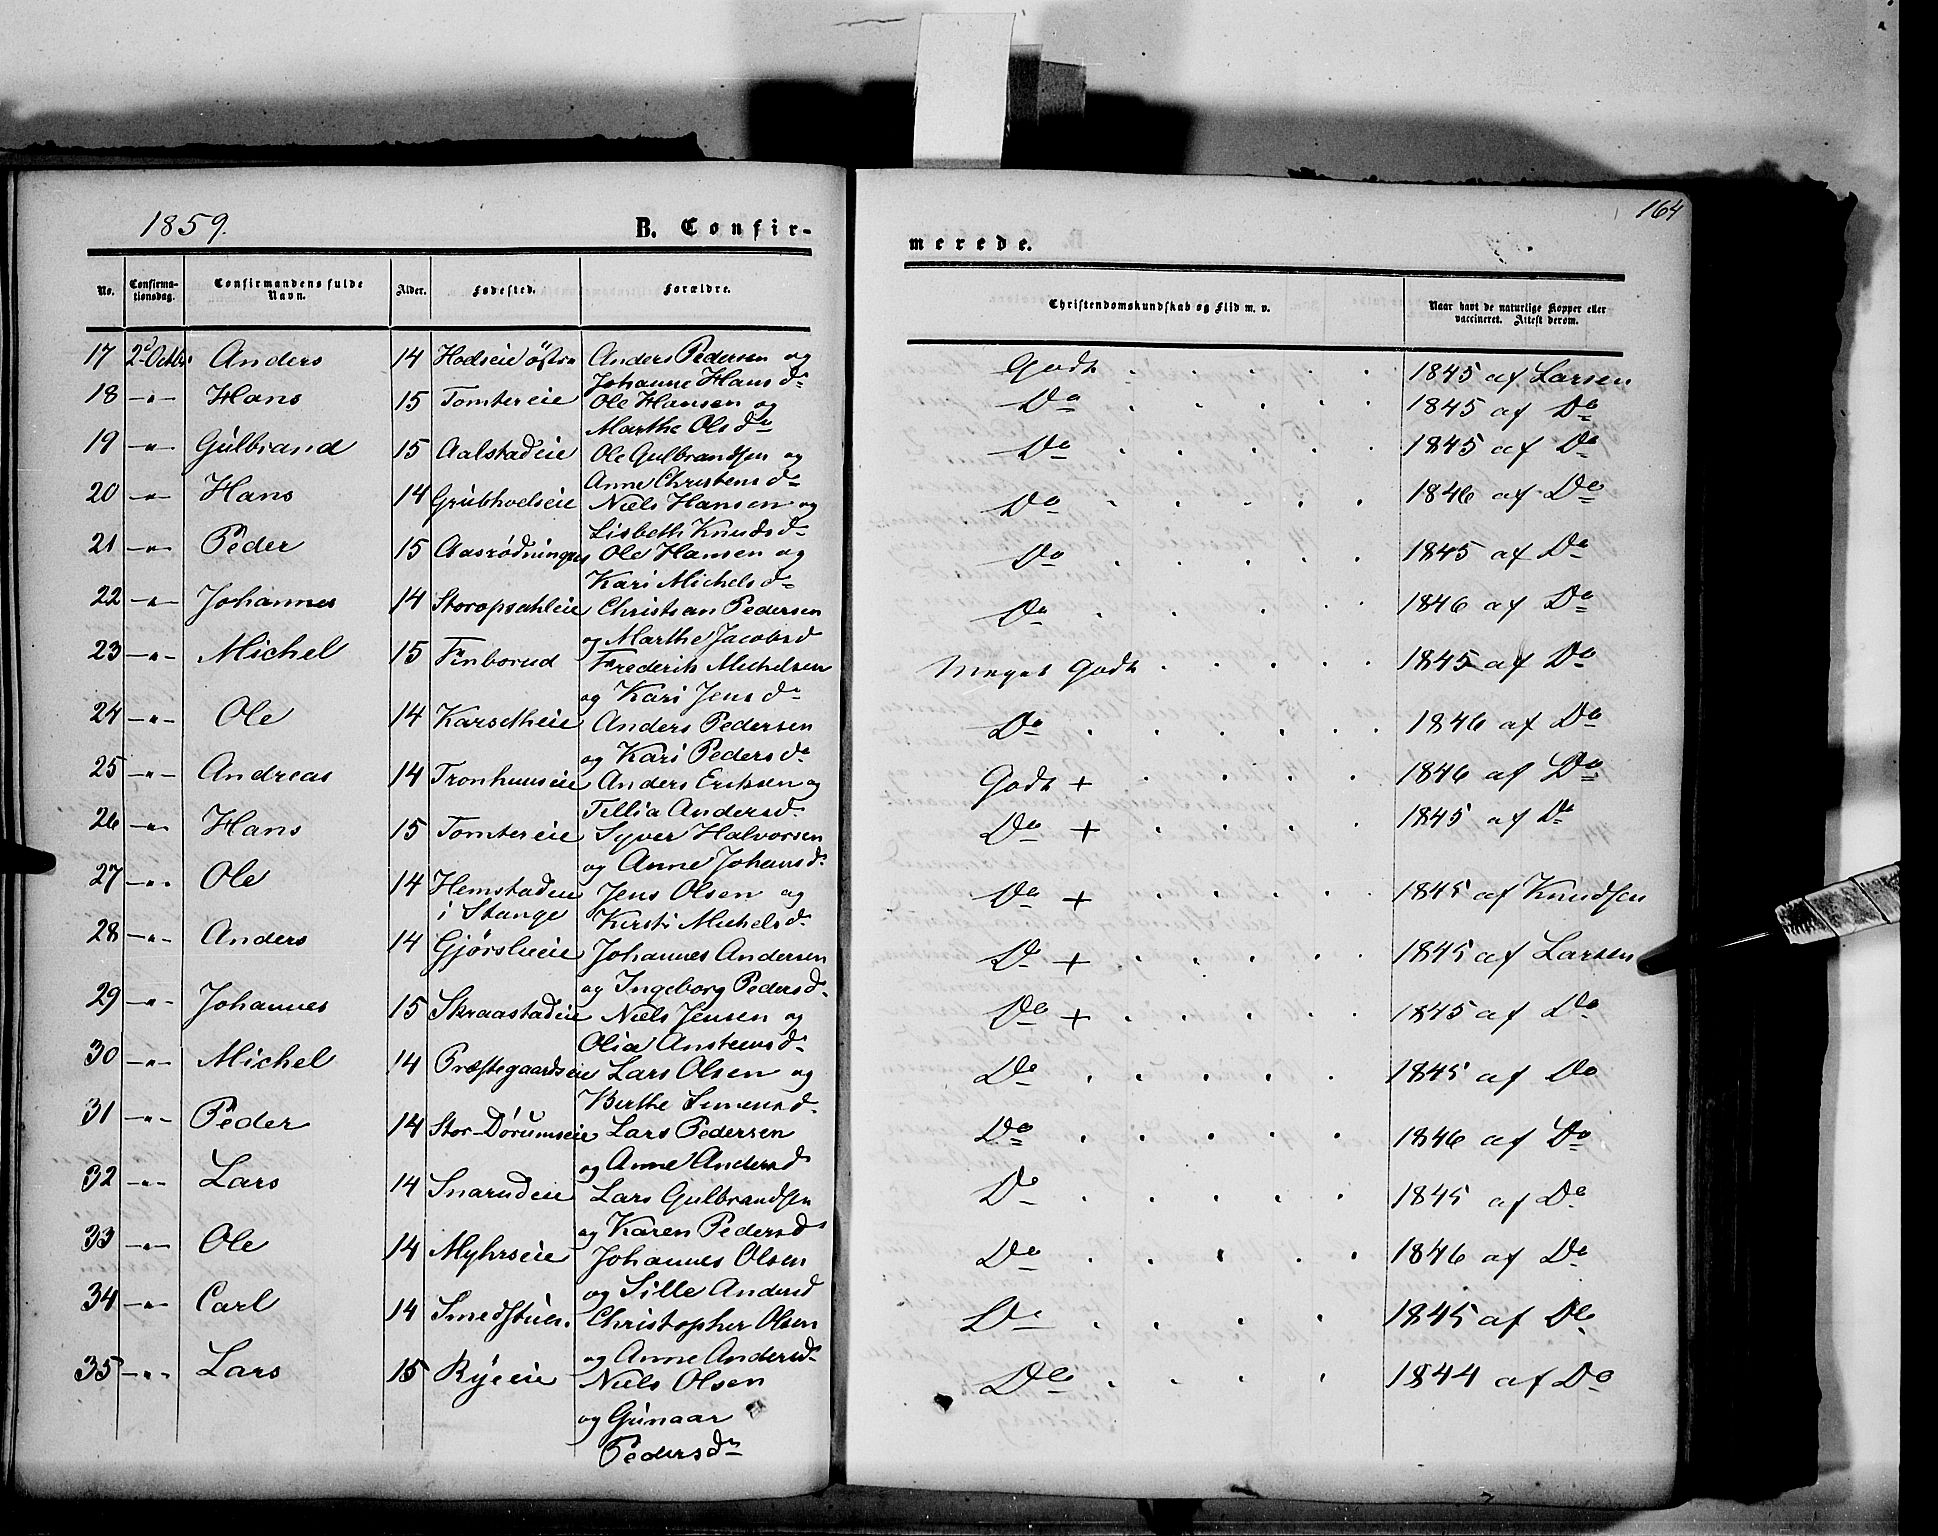 164
1859. B. Confir-
merede.
No. Confirma-tionsdag. Confirmandens fulde Navn. Alder. Fødested. Forældre. Christendomskundskab og Flid m. v. Naar havt de naturlige Kopper eller vaccineret. Attest derom.
17 2d Octbr Anders 14 Hodseie østre Anders Pedersen og Johanne Hansd. Godt 1845 af Larsen
18 -"- Hans 15 Tomtereie Ole Hansen og Marthe Olsd. Do 1845 af Do
19 -"- Gulbrand 15 Aalstadeie Ole Gulbrandsen og Anne Christensd. Do 1845 af Do
20 -"- Hans 14 Grubhodseie Niels Hansen og Lisbeth Knudsd. Do 1846 af Do
21 -"- Peder 15 Aasrødningen Ole Hansen og Kari Michelsd. Do 1845 af Do
22 -"- Johannes 14 Storopsahleie Christian Pedersen og Marthe Jacobsd Do 1846 af Do
23 -"- Michel 15 Finborud Frederik Michelsen og Kari Jensd. Meget Godt 1845 af Do
24 -"- Ole 14 Karsetheie Anders Pedersen og Kari Pedersd. Do 1846 af Do
25 -"- Andreas 14 Tronhuuseie Anders Eriksen og Tillia Andersd. Godt + 1846 af Do
26 -"- Hans 15 Tomtereie Syver Halvorsen og Anne Johansd. Do + 1845 af Do
27 -"- Ole 14 Hemstadeie i Stange Jens Olsen og Kirsti Michelsd. Do + 1845 af Knudsen
28 -"- Anders 14 Gjørslieie Johannes Andersen og Ingeborg Pedersd. Do + 1845 af Larsen
29 -"- Johannes 15 Skraastadeie Niels Jensen og Olia Anstensd. Do + 1845 af Do
30 -"- Michel 14 Præstegaardseie Lars Olsen og Berthe Simensd. Do 1845 af Do
31 -"- Peder 14 Stor-Dørumseie Lars Pedersen og Anne Andersd Do 1846 af Do
32 -"- Lars 14 Snarudeie Lars Gulbrandsen og Karen Pedersd Do 1845 af Do
33 -"- Ole 14 Myhrseie Johannes Olsen og Sille Andersd Do 1846 af Do
34 -"- Carl 14 Smedstuen. Christopher Olsen og Anne Andersd. Do 1845 af Do
35 -"- Lars 15 Ryeeie Niels Olsen og Gunaar Pedersd. Do 1844 af Do